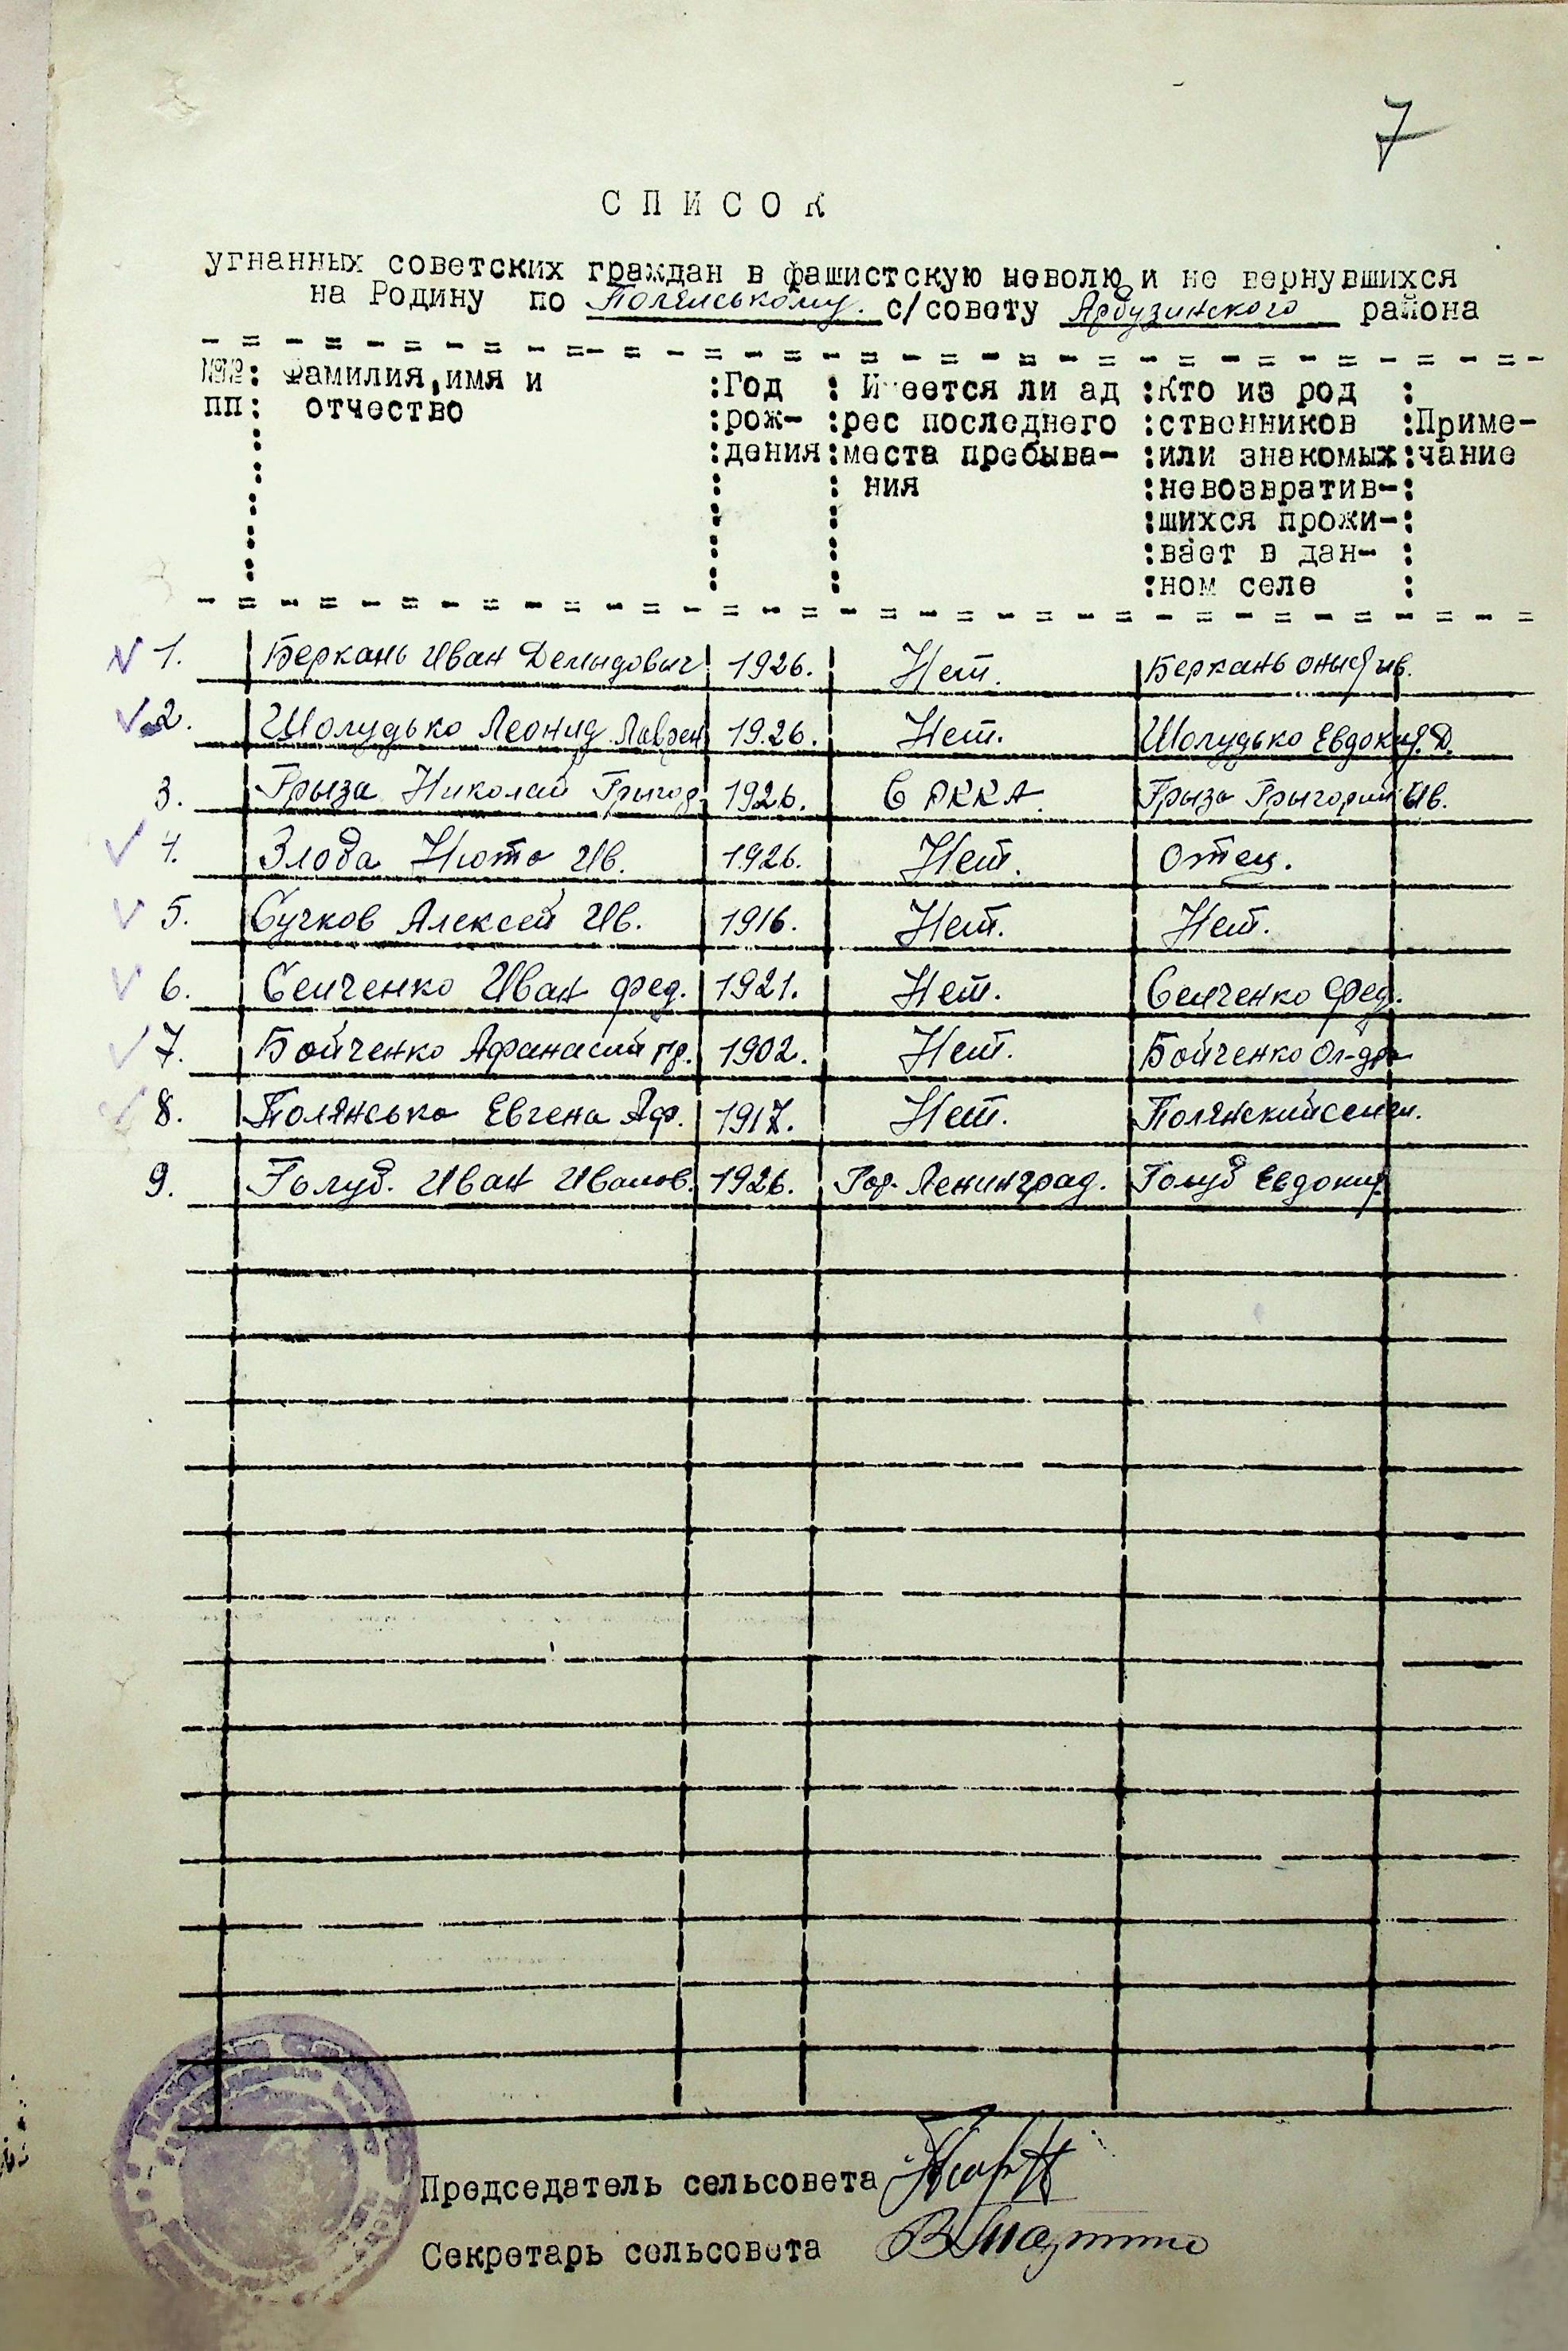 7
СПИСОК
угнанных советских граждан в фашистскую неволю и не вернувшихся
на Родину по Полянському с/совету Арбузинского района
№№ : Фамилия, имя и :Год : Имеется ли ад :Кто из род :
пп : отчество :рож- :рес последнего :ственников :Приме-
: :дения :места пребыва- :или знакомых :чание
: : : ния :невозвратив- :
: : : :шихся прожи- :
: : : :вает в дан- :
: : : :ном селе :
1. Беркань Иван Демидович 1926. Нет. Беркань Ив.
2. Шолудько Леонид Лаврен 1926. Нет. Шолудько Евдокия Д.
3. Грыза Николай Грыгор. 1926. С РККА. Грыза Грыгорий Ив.
4. Злоба Нюта Ив. 1926. Нет. Отец.
5. Сучков Алексей Ив. 1916. Нет. Нет.
6. Семченко Иван Фед. 1921. Нет. Семченко Фед.
7. Бойченко Афанасий 1902. Нет. Бойченко Ол-др
8. Полянсько Евгена Аф. 1917. Нет. Полянский
9. Голуб. Иван Иванов. 1926. Гор. Ленинград. Голуб Евдокия
Председатель сельсовета
Секретарь сельсовета